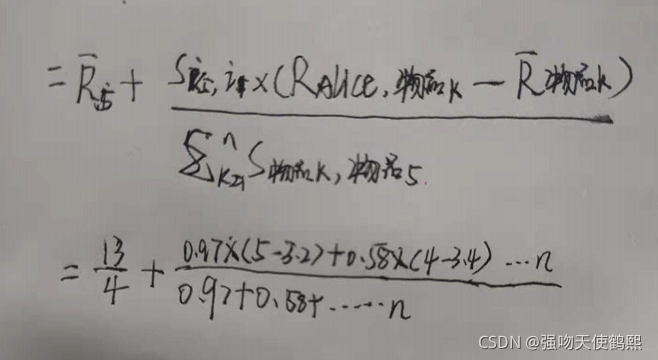 = R̄ᵢ₅ + S i₅, i₁ × (R Alice, 物品k − R̄ 物品k)
∑ⁿ k=1 S 物品k, 物品5.
= 13/4 + 0.97×(5-3.2)+0.58×(4-3.4) ···n
0.97+0.58+······n
CSDN @强吻天使鹤熙